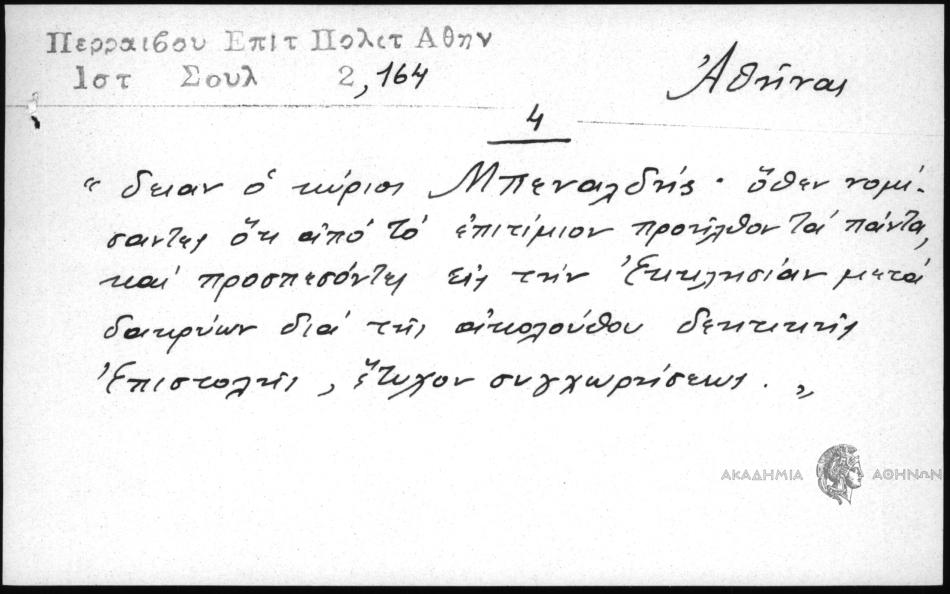 Περραιβου Επιτ Πολιτ Αθην
Ιστ Σουλ 2,164
Ἀθῆναι
4
“ δειαν ὁ κύριος Μπεναλδής · ὅθεν νομί-
σαντες ὅτι ἀπό τό ἐπιτίμιον προῆλθον τά πάντα,
καί προσπεσόντες εἰς τήν Ἐκκλησίαν μετά
δακρύων διά τῆς ἀκολούθου δεητικῆς
Ἐπιστολῆς, ἔτυχον συγχωρήσεως. „
ΑΚΑΔΗΜΙΑ ΑΘΗΝΩΝ